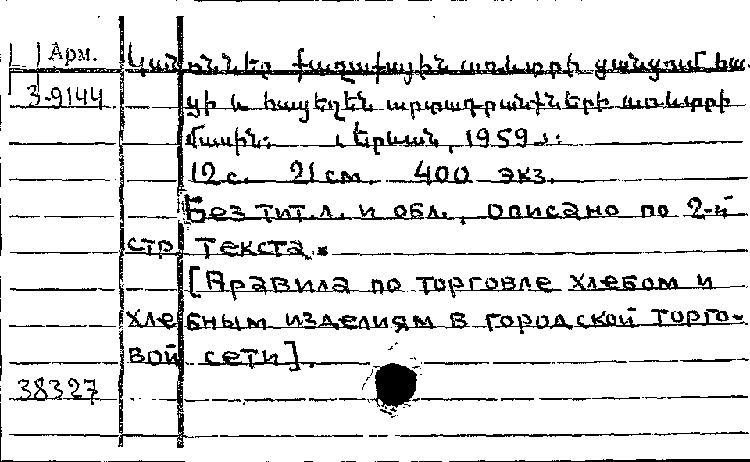 Арм.
Կանոններ քաղաքային առևտրի ցանցում հա-
3-9144
ցի և հացեղեն արտադրանքների առևտրի
մասին: Երևան, 1959.
12 с. 21 см. 400 экз.
Без тит.л. и обл., описано по 2-й
стр текста.
[Правила по торговле хлебом и
хлебным изделиям в городской торго-
вой сети].
38327